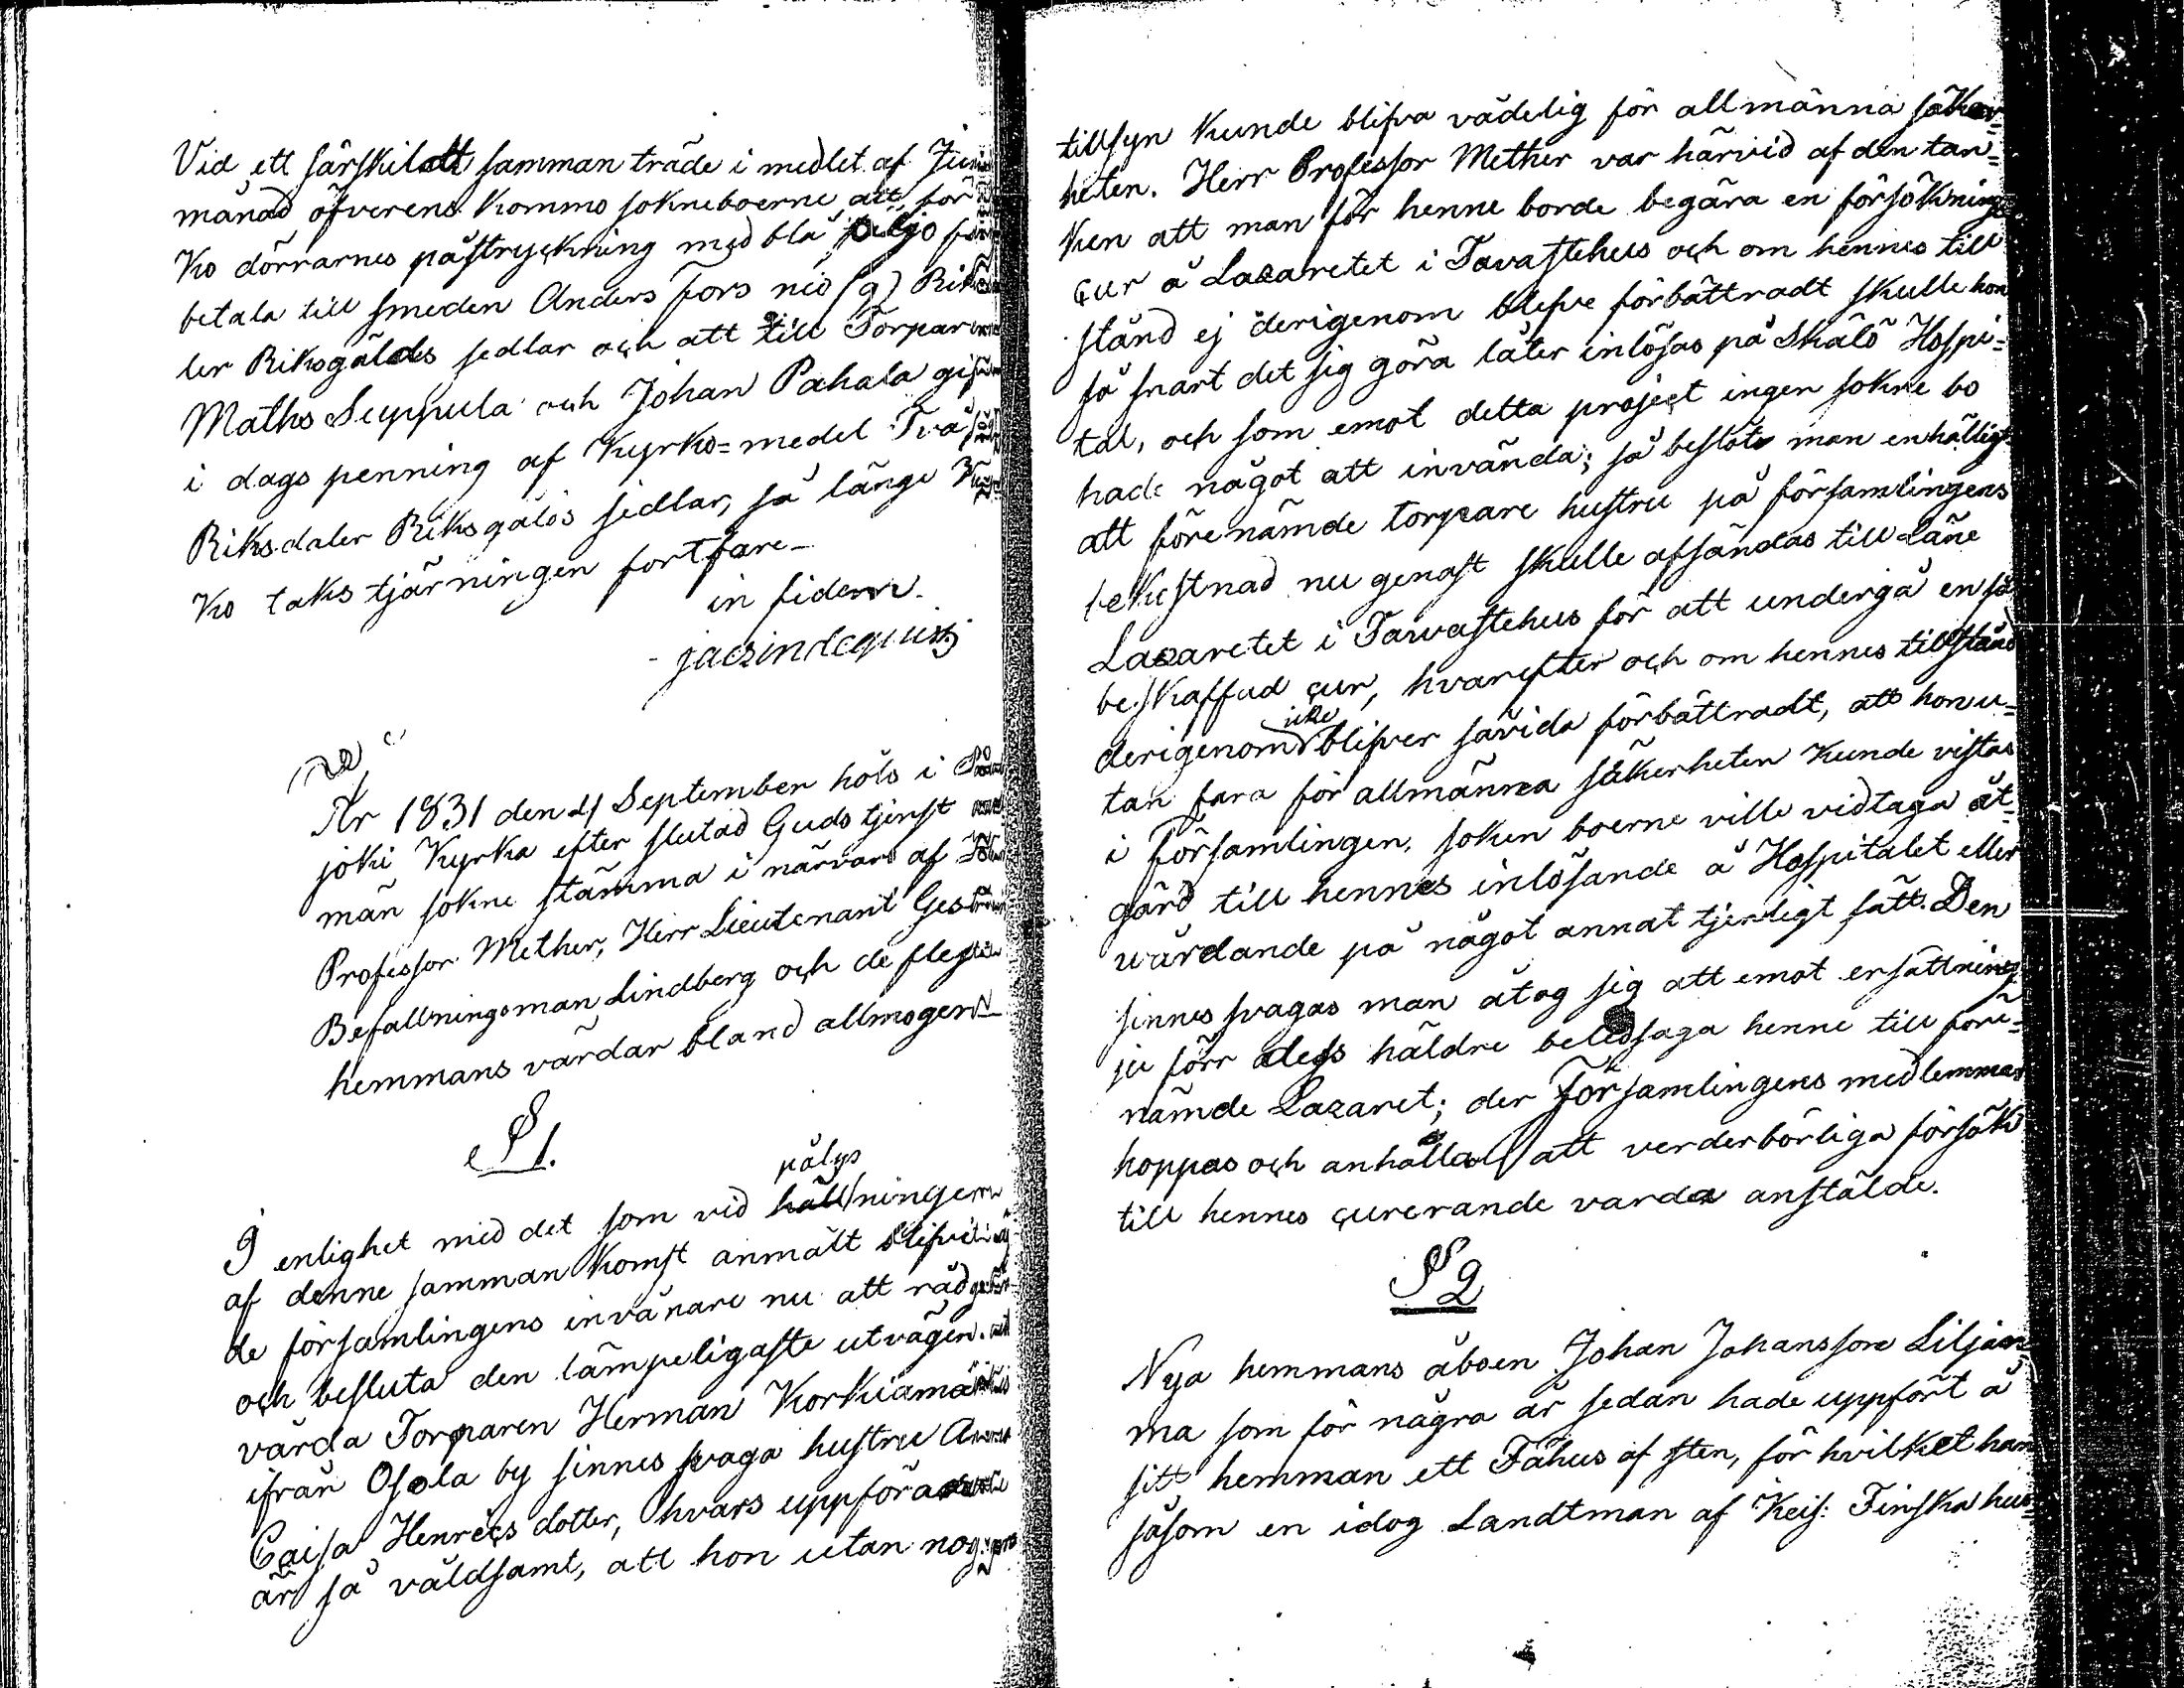 Vid ett särskildt samman träde i medlet af Junii
månad öfverens kommo sokneboerne att för
ko dörrarnes påstryckning med blå oljo
betala till smeden Anders fors nio (9) Riks
ler Riksgälds sedlar och att till Torparne
Maths Seppula och Johan Pahala gifva
i dags penning af Kyrko=medel Två
Riksdaler Riksgälds sedlar, så länge Kyr
ko taks tjärningen fortfare_
in fidem.
År 1831 den 4 September höls i
joki Kyrka efter slutad Guds tjenst
män sokne stämma i närvaro af
Professor Mether, Herr Lieutenant
Befallningsman Lindberg och de fleste
hemmans värdar bland allmogen_
§ 1.
pålys
I enlighet med det som vid håll/ningen
af denne samman komst anmält blifvit
de församlingens invånare nu att rådgöra
och besluta den lämpeligaste utvägen att
vårda Torparen Herman Korkiamäki
ifrån Osola by sinnes svaga hustru Anna
Caisa Henrics dotter, hvars uppförande
är så våldsamt, att hon utan noga
tillsyn kunde blifva vådelig för allmänna säker=
heten. Herr Professor Mether var härvid af den tan=
ken att man för henne borde begära en försöknings
cur å Lazaretet i Tavastehus och om hennes till
stånd ej derigenom blefve förbättradt skulle hon
så snart det sig göra låter inlösas på Skålö Hospi=
tal, och som emot detta project ingen sokne bo
hade något att invända; så beslöts man enhälligt
att förenämde torpare hustru på församlingens
bekostnad nu genast skulle afsändas till Läne
Lazaretet i Tavastehus för att undergå en så
beskaffad cur, hvarefter och om hennes tillstånd
icke
derigenom blifver såvida förbättradt, att hon u=
tan fara för allmänna säkerheten kunde vistas
i Församlingen, soken boerne ville vidtaga åt=
gärd till hennes inlösande å Hospitalet eller
wårdande på något annat tjenligt sätt. Den
sinnes svagas man åtog sig att emot ersättning
ju förr dess häldre beledsaga henne till före=
nämde Lazaret; der Församlingens medlemmar
hoppas och anhålla att vederbörliga försök
till hennes curerande varda anstälde.
§ 2
Nya hemmans åboen Johan Johansson Liljan=
ma som för några år sedan hade uppfört å
sitt hemman ett Fähus af sten, för hvilket han
såsom en idog Landtman af Keis: Finska hus=